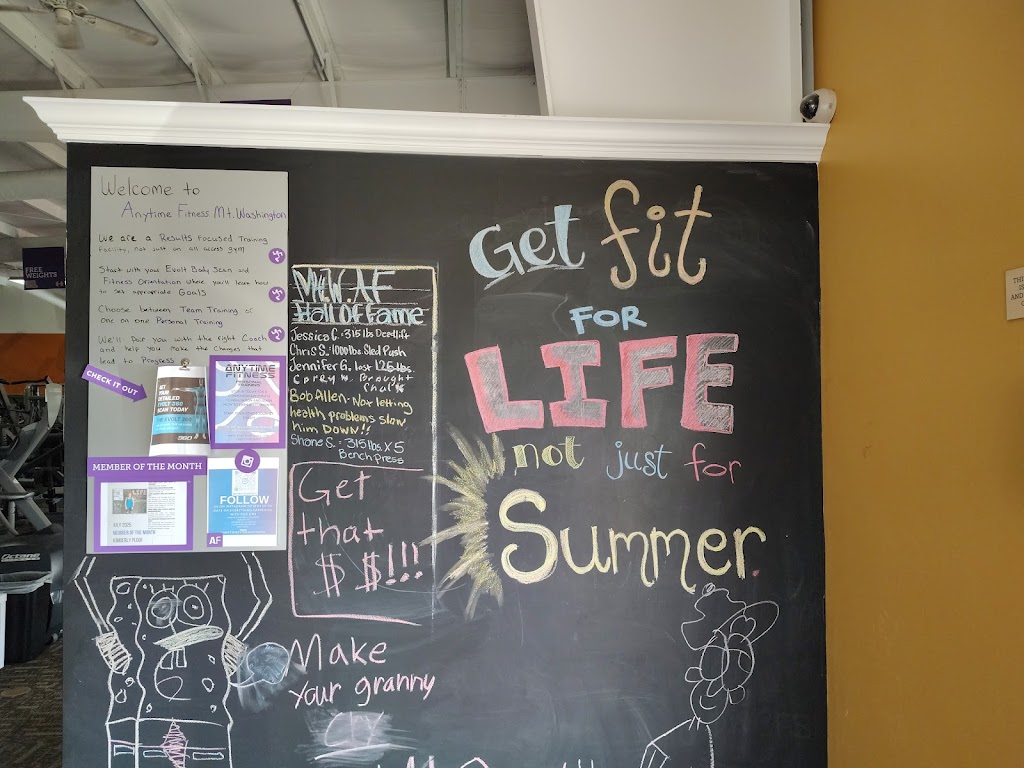 Welcome to
Anytime Fitness Mt. Washington
We are a Results Focused Training
Facility, not just an all access gym
Start with your Evolt Body Scan and
Fitness Orientation where you'll learn how
to set appropriate Goals
Choose between Team Training or
one on one Personal Training
We'll pair you with the right Coach
and help you make the Changes that
lead to Progress
CHECK IT OUT
GET
YOUR
DETAILED
EVOLT 360
SCAN TODAY
360
ANYTIME
FITNESS
MEMBER OF THE MONTH
JULY 2025
MEMBER OF THE MONTH
FOLLOW
AF
FREE
WEIGHTS
Octane
Mt.W. AF
Hall of Fame
Jessica C. - 315 lbs Deadlift
Chris S. - 1000 lbs. Sled Push
Jennifer G. lost 126 lbs.
Corey W. Brought
Bob Allen - Not letting
health problems slow
him DOWN!!
Shane S. - 315 lbs x 5
Bench press
Get
that
$ $!!!
Make
your granny
Get fit
FOR
LIFE
not just for
Summer.